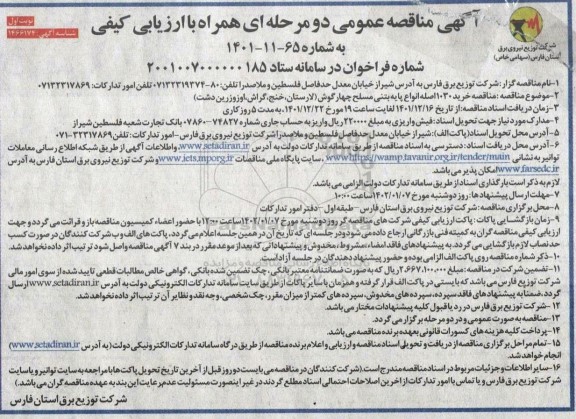 نوبت اول
شناسه آگهی: ۱۴۶۶۱۷۴
آگهی مناقصه عمومی دو مرحله ای همراه با ارزیابی کیفی
به شماره ۶۵-۱۱-۱۴۰۱
شماره فراخوان در سامانه ستاد ۲۰۰۱۰۰۷۰۰۰۰۰۰۱۸۵
شرکت توزیع نیروی برق
استان فارس (سهامی خاص)
۱-نام مناقصه گزار :شرکت توزیع برق فارس به آدرس شیراز خیابان معدل حدفاصل فلسطین و ملاصدرا تلفن: ۸۰-۰۷۱۳۲۳۱۹۳۷۴ تلفن امور تدارکات: ۰۷۱۳۲۳۱۷۸۶۹
۲-موضوع مناقصه :مناقصه خرید ۱۰۳۰ اصله انواع پایه بتنی مسلح چهارگوش (لارستان،خنج،گراش،اوز و زرین دشت)
۳- زمان دریافت اسناد مناقصه: از تاریخ ۱۴۰۱/۱۲/۱۶ لغایت ساعت ۱۹ مورخ ۱۴۰۱/۱۲/۲۲ به مدت ۵ روز کاری
۴-مدارک مورد نیاز جهت تحویل اسناد: فیش واریزی به مبلغ ۳۲۰۰۰۰ ریال واریز به حساب جاری شماره ۰۷۸۶۰-۷۴۸۳۷ بانک تجارت شعبه فلسطین شیراز
۵- آدرس محل تحویل اسناد(پاکت الف): شیراز خیابان معدل حدفاصل فلسطین و ملاصدرا شرکت توزیع نیروی برق فارس-امور تدارکات: تلفن ۳۲۳۱۷۸۶۹-۰۷۱
۶- آدرس محل دریافت اسناد: دسترسی به اسناد مناقصه از طریق سامانه تدارکات دولت به آدرس www.setadiran.ir، واطلاعات آگهی از طریق شبکه اطلاع رسانی معاملات
توانیر به نشانی https://wamp.tavanir.org.ir/tender/main www، سایت پایگاه ملی مناقصات www.iets.mporg.ir وشرکت توزیع نیروی برق فارس به آدرس
www.farsedc.ir امکان پذیر می باشد.
لازم به ذکر است بارگذاری اسناد از طریق سامانه تدارکات دولت الزامی می باشد.
۷-مهلت ارسال پیشنهاد ها: روز دوشنبه مورخ ۱۴۰۲/۰۱/۰۷ ساعت ۱۰:۰۰
۸-محل برگزاری مناقصه: شرکت توزیع نیروی برق استان فارس -طبقه اول -دفتر امور تدارکات
۹- زمان بازگشایی پاکات: پاکت ارزیابی کیفی شرکت های مناقصه گر روز دوشنبه مورخ ۱۴۰۲/۰۱/۰۷ ساعت ۱۲:۰۰ با حضور اعضاء کمیسیون مناقصه باز و قرائت می گردد و جهت
ارزیابی کیفی مناقصه گران به کمیته فنی بازرگانی ارجاع داده می شود و در جلسه ای که تاریخ آن در همین جلسه اعلام می گردد، پاکت های الف و ب شرکت کنندگان در صورت کسب
حد نصاب لازم بازگشایی می گردد. به پیشنهادهای فاقد امضاء، مشروط، مخدوش و پیشنهاداتی که بعد از موعد مقرر در بند ۷ آگهی مناقصه واصل شود ترتیب اثر داده نخواهد شد.
۱۰- ذکر شماره مناقصه روی پاکت الف الزامی بوده و حضور پیشنهاد دهندگان در جلسه آزاد است.
۱۱-تضمین شرکت در مناقصه: مبلغ ۲.۶۶۷.۱۰۰.۰۰۰ ریال که به صورت ضمانتنامه معتبر بانکی، چک تضمین شده بانکی، گواهی خالص مطالبات قطعی تایید شده از سوی امور مالی
شرکت توزیع فارس می باشد که بایستی در پاکت الف قرار گرفته و همزمان با سایر پاکات از طریق سایت سامانه تدارکات الکترونیکی دولت به آدرس www.setadiran.ir ارسال
گردد.ضمنا به پیشنهادهای فاقد سپرده، سپرده های مخدوش، سپرده های کمتر از میزان مقرر، چک شخصی ،وجه نقد و نظایر آن ترتیب اثر داده نخواهد شد.
۱۲-شرکت توزیع برق فارس در رد یا قبول کلیه پیشنهادات مختار می باشد.
۱۳- مناقصه به صورت عمومی و در دو مرحله برگزار می گردد.
۱۴-پرداخت کلیه هزینه های کسورات قانونی بعهده برنده مناقصه می باشد.
۱۵-تمام مراحل برگزاری مناقصه از دریافت و تحویل اسناد مناقصه و ارزیابی و اعلام برنده مناقصه از طریق درگاه سامانه تدارکات الکترونیکی دولت (به آدرس www.setadiran.ir)
انجام خواهد شد.
۱۶-سایر اطلاعات و جزئیات مربوط در اسناد مناقصه مندرج است.(شرکت کنندگان در مناقصه می بایست دو روز قبل از آخرین تاریخ تحویل پاکت ها با مراجعه به سایت توانیر و یا سایت
شرکت توزیع برق فارس و یا تماس با امور تدارکات از آخرین اصلاحات احتمالی اسناد مطلع گردند در غیر اینصورت مسئولیت عدم رعایت این بند به عهده مناقصه گران می باشد.)
شرکت توزیع برق استان فارس